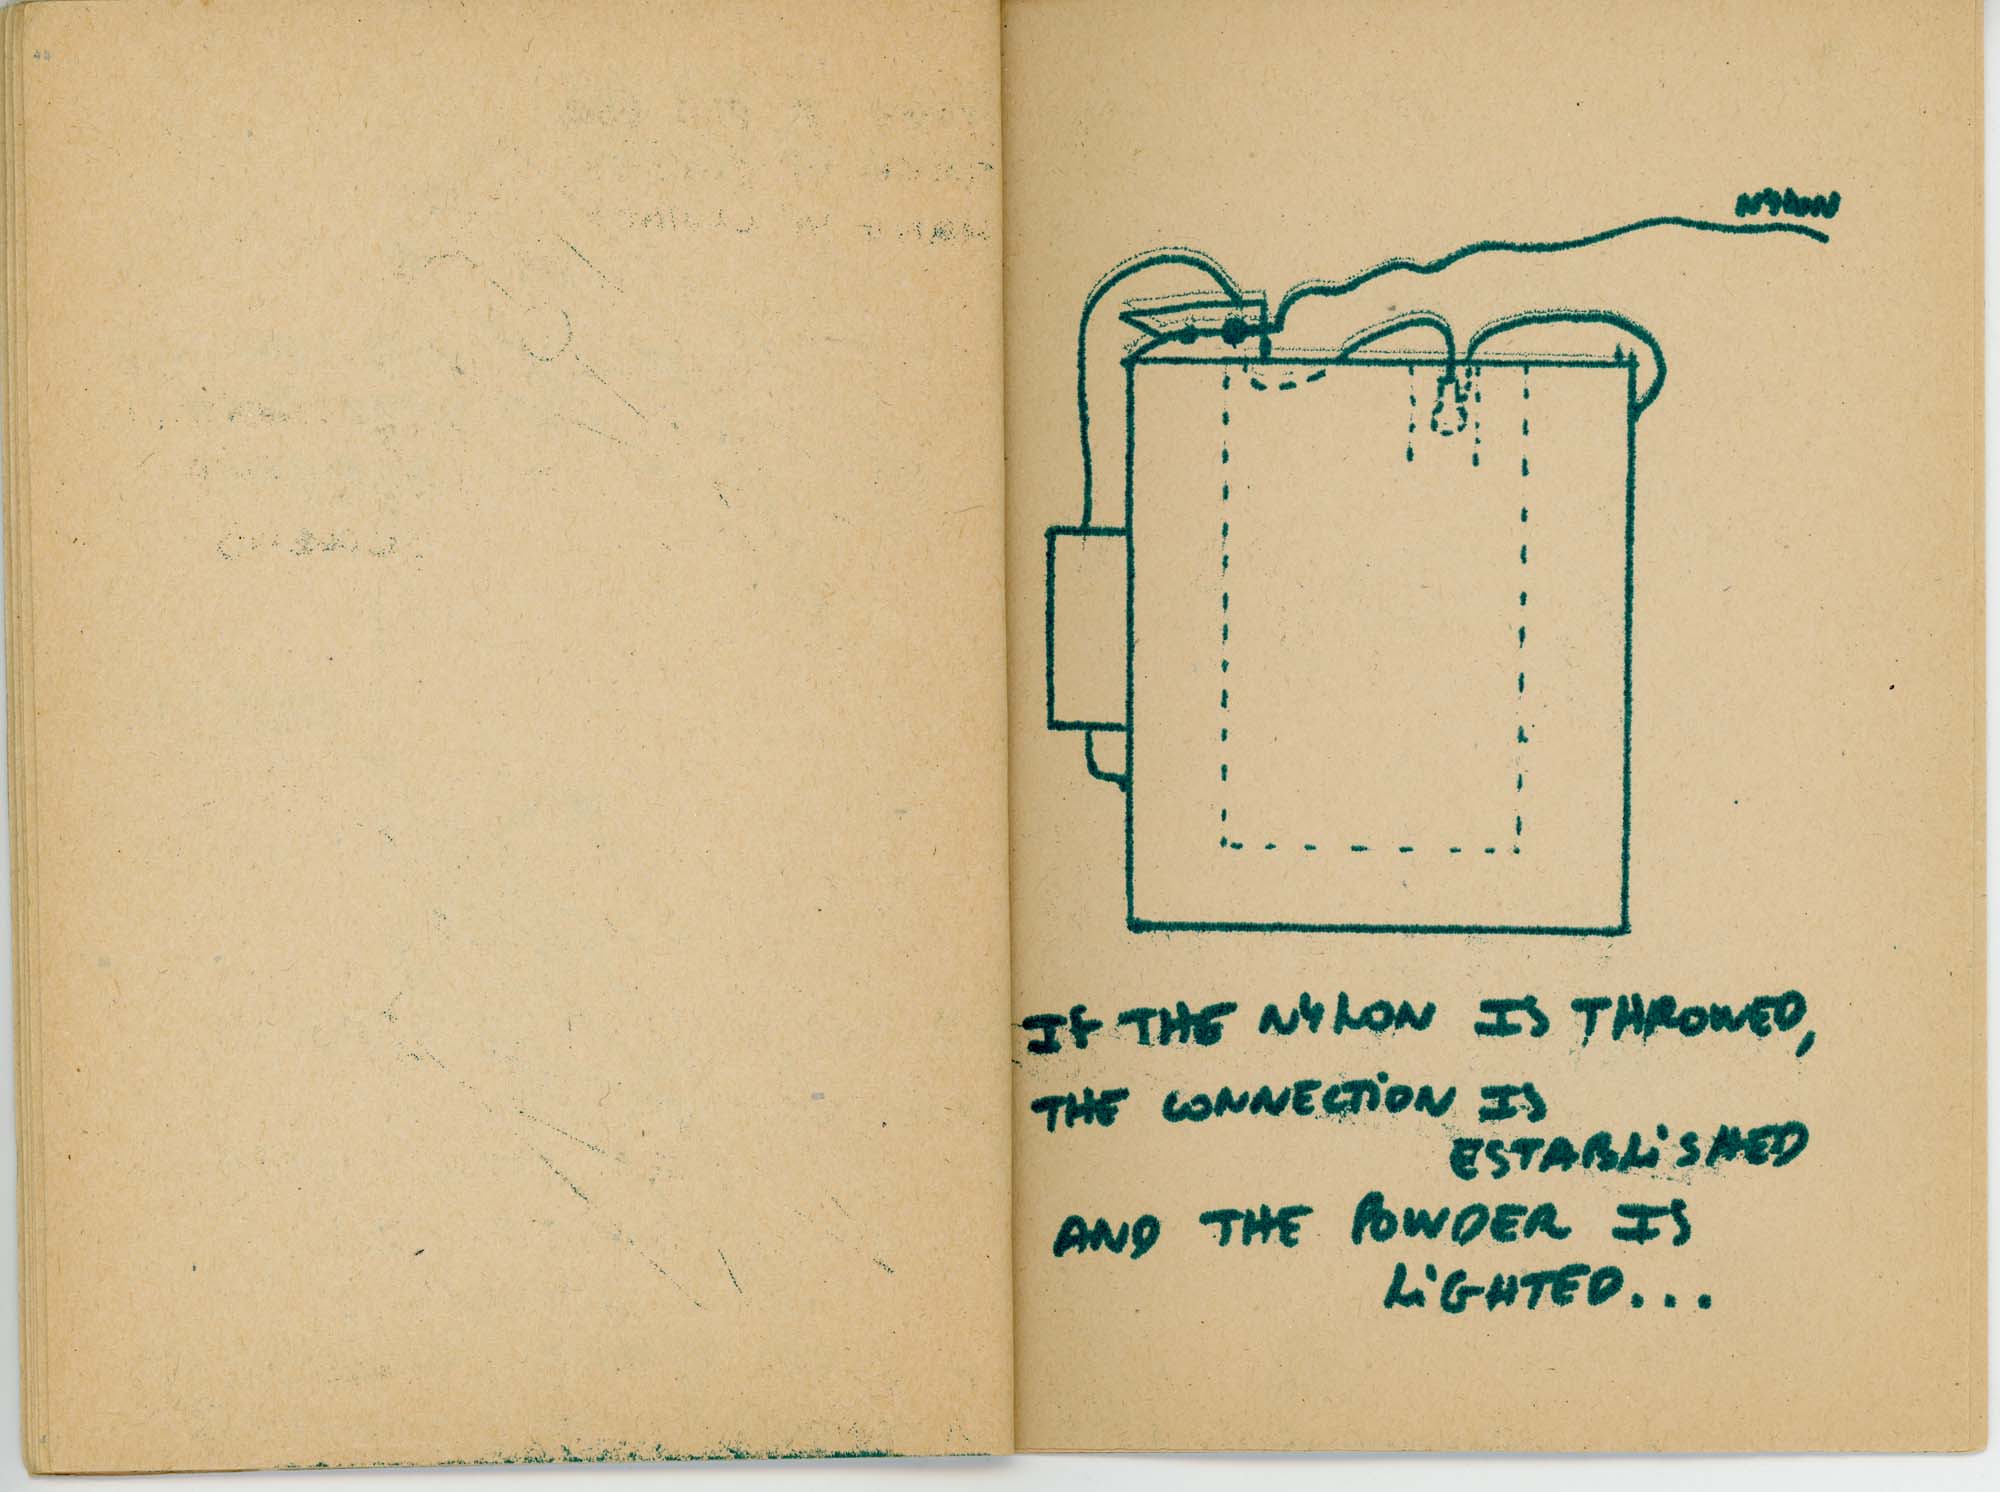 NYLON
IF THE NYLON IS THROWED,
THE CONNECTION IS
ESTABLISHED
AND THE POWDER IS
LIGHTED...